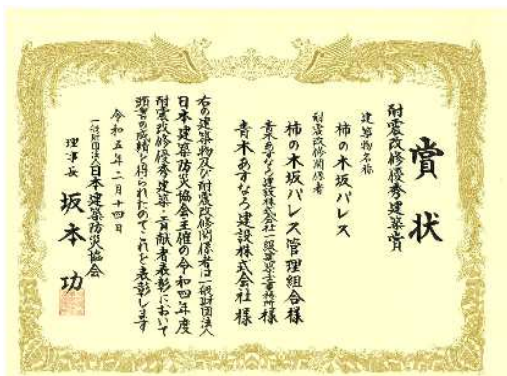 賞状
耐震改修優秀建築賞
建築物名称
柿の木坂パレス
耐震改修関係者
柿の木坂パレス管理組合様
青木あすなろ建設株式会社一級建築士事務所様
青木あすなろ建設株式会社様
右の建築物及び耐震改修関係者は一般財団法人
日本建築防災協会主催の令和四年度
耐震改修優秀建築・貢献者表彰において
頭書の成績を得られたのでこれを表彰します
令和五年二月十四日
一般財団法人日本建築防災協会
理事長 坂本功